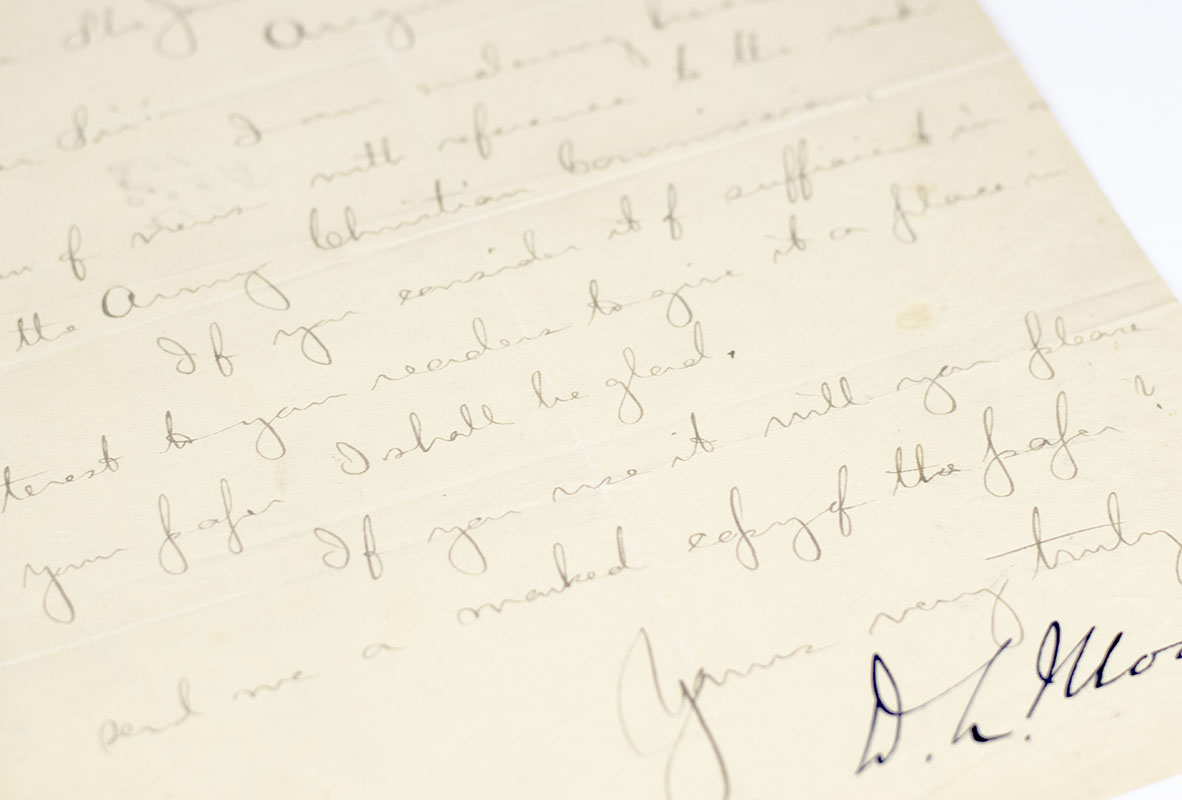 Argus
Sir: I am making
of views with reference to the work
the Army Christian Commission.
If you consider it of sufficient in
terest to your readers to give it a place in
your paper I shall be glad.
If you use it will you please
send me a marked copy of the paper?
Yours very truly
D. L. Moo